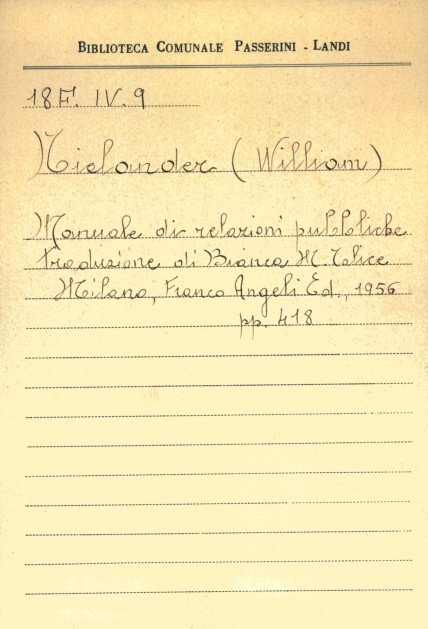 BIBLIOTECA COMUNALE PASSERINI - LANDI
18F. IV. 9
Nielander (William)
Manuale di relazioni pubbliche
traduzione di Bianca M. Talice
Milano, Franco Angeli Ed., 1956
pp. 418